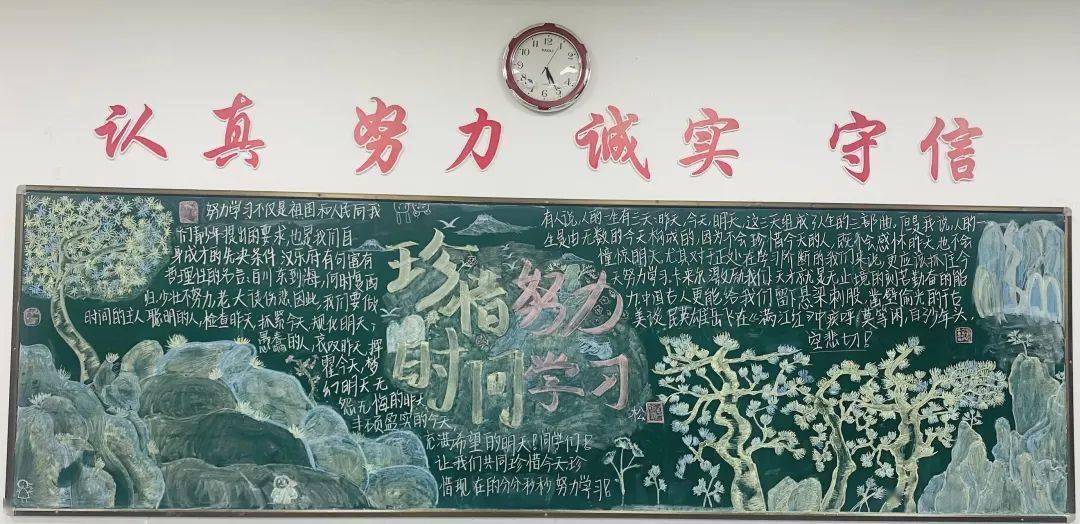 认真 努力 诚实 守信
努力学习不仅是祖国和人民向我
们青少年提出的要求,也是我们自
身成才的先决条件,汉乐府有句富有
哲理性的名言:百川东到海,何时复西
归,少壮不努力,老大徒伤悲,因此,我们要做
时间的主人,聪明的人,检查昨天,抓紧今天,规化明天,
愚蠢的人,哀叹昨天,挥
霍今天,梦
幻明天,无
怨无悔的昨天
丰硕盈实的今天,
充满希望的明天!同学们!
让我们共同珍惜今天珍
惜现在的分分秒秒努力学习!
珍惜
时间
努力
学习
松
有人说,人的一生有三天:昨天,今天,明天,这三天组成了人生的三部曲,但是我说,人的一
生是由无数的今天构成的,因为不会珍惜今天的人,既不会感怀昨天也不会
憧憬明天,尤其对于正处在学习阶断的我们来说,更应该抓住今
天努力学习,卡来尔激励我们:天才就是无止境的刻苦勤奋的能
力,中国古人更能给我们留下悬梁刺股,凿壁偷光的千古
美谈,民英雄岳飞在《满江红》冲疾呼,莫等闲,白了少年头,
空悲切!